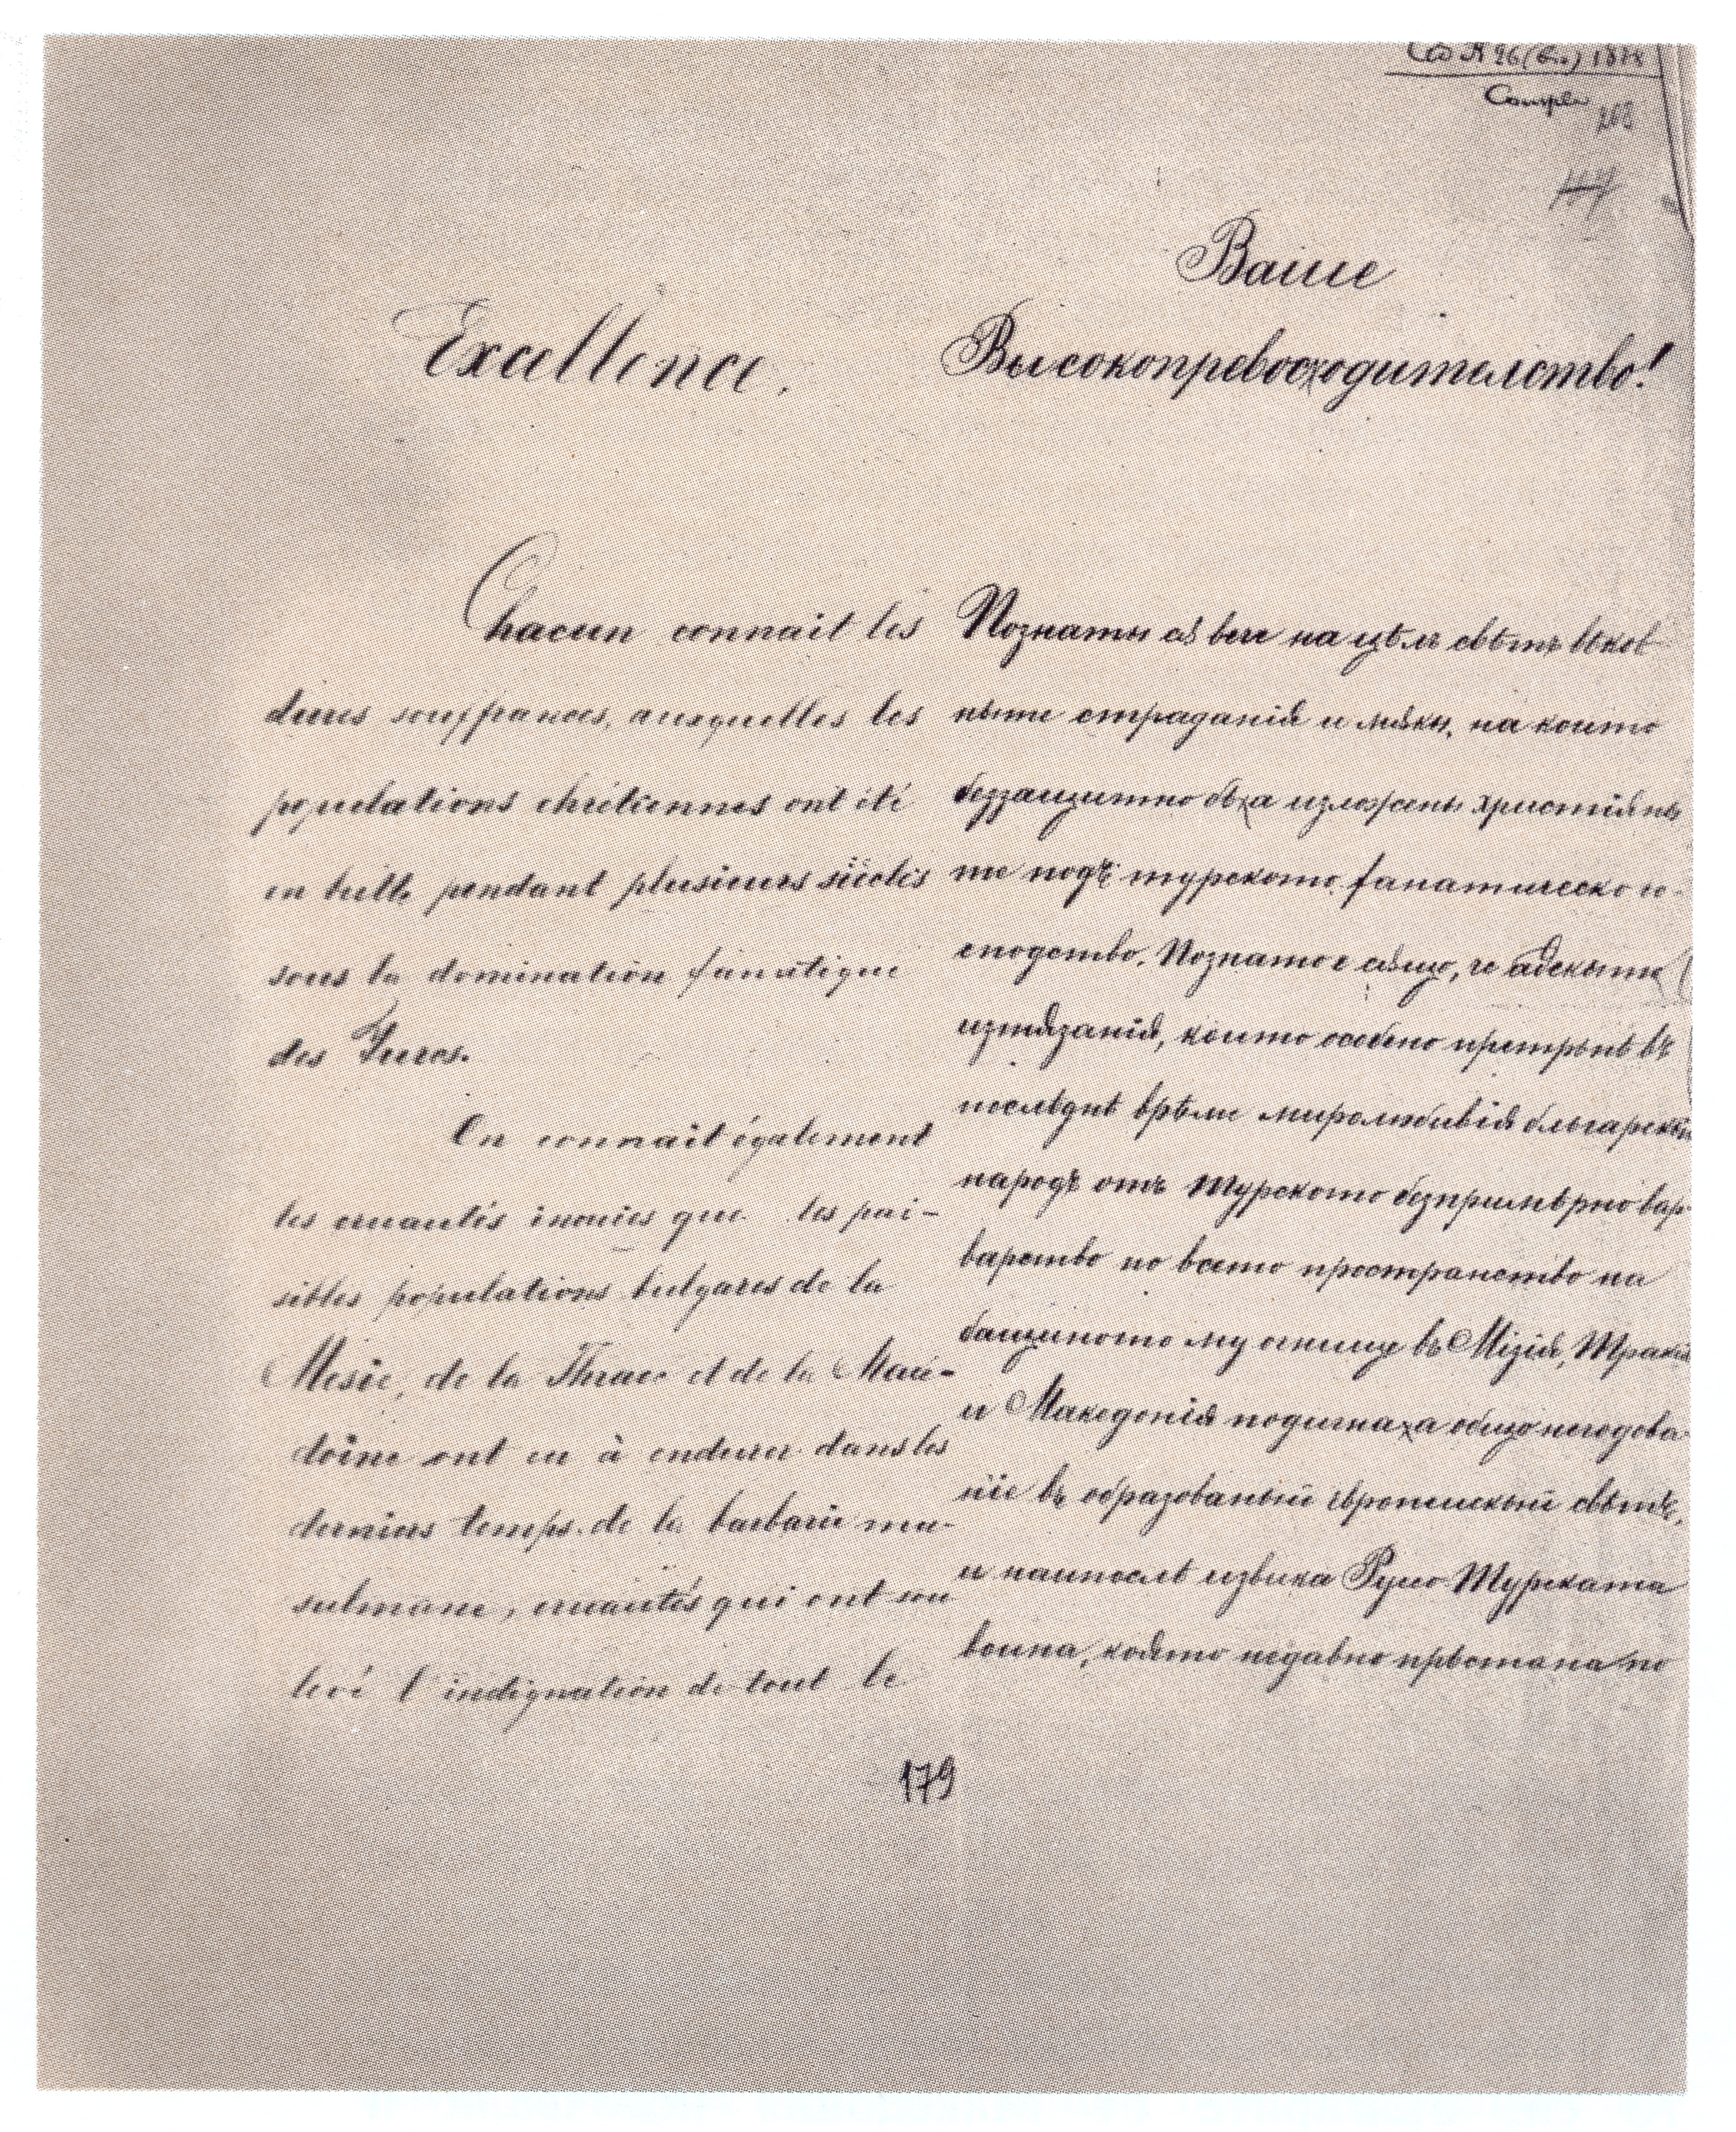 1878
Comple
203
Excellence.
Chacun connait les
dures souffrances, auxquelles les
populations chrétiennes ont été
en butte pendant plusieurs siècles
sous la domination fanatique
des Turcs.
On connait également
les cruautés inouies que les pai-
sibles populations bulgares de la
Mesie, de la Thrace et de la Macé-
doine ont eu à endurer dans les
derniers temps de la barbarie mu-
sulmane, cruautés qui ont sou
levé l'indignation de tout le
Ваше
Высокопревосходителство!
Познаты сѫ вече на цѣлъ свѣтъ вѣков
ныте страданіѭ и мѫкы, на които
беззащитно бѣха изложены христіѭны
те подъ турското фанатическо го-
сподство. Познато е сѫщо, че адскыте
изтѫзаніѭ, които особено претърпѣ въ
послѣднѣ врѣме миролюбивіѭ българскый
народъ отъ турското безпримѣрно вар-
варство по всето пространство на
бащиното му огнище въ Мизіѭ, Тракіѭ
и Македоніѭ подигнаха общо негодова
ніе въ образованый европейскый свѣтъ,
и найпослѣ извика Русо-Турската
война, коѭто недавно прѣстана по
179